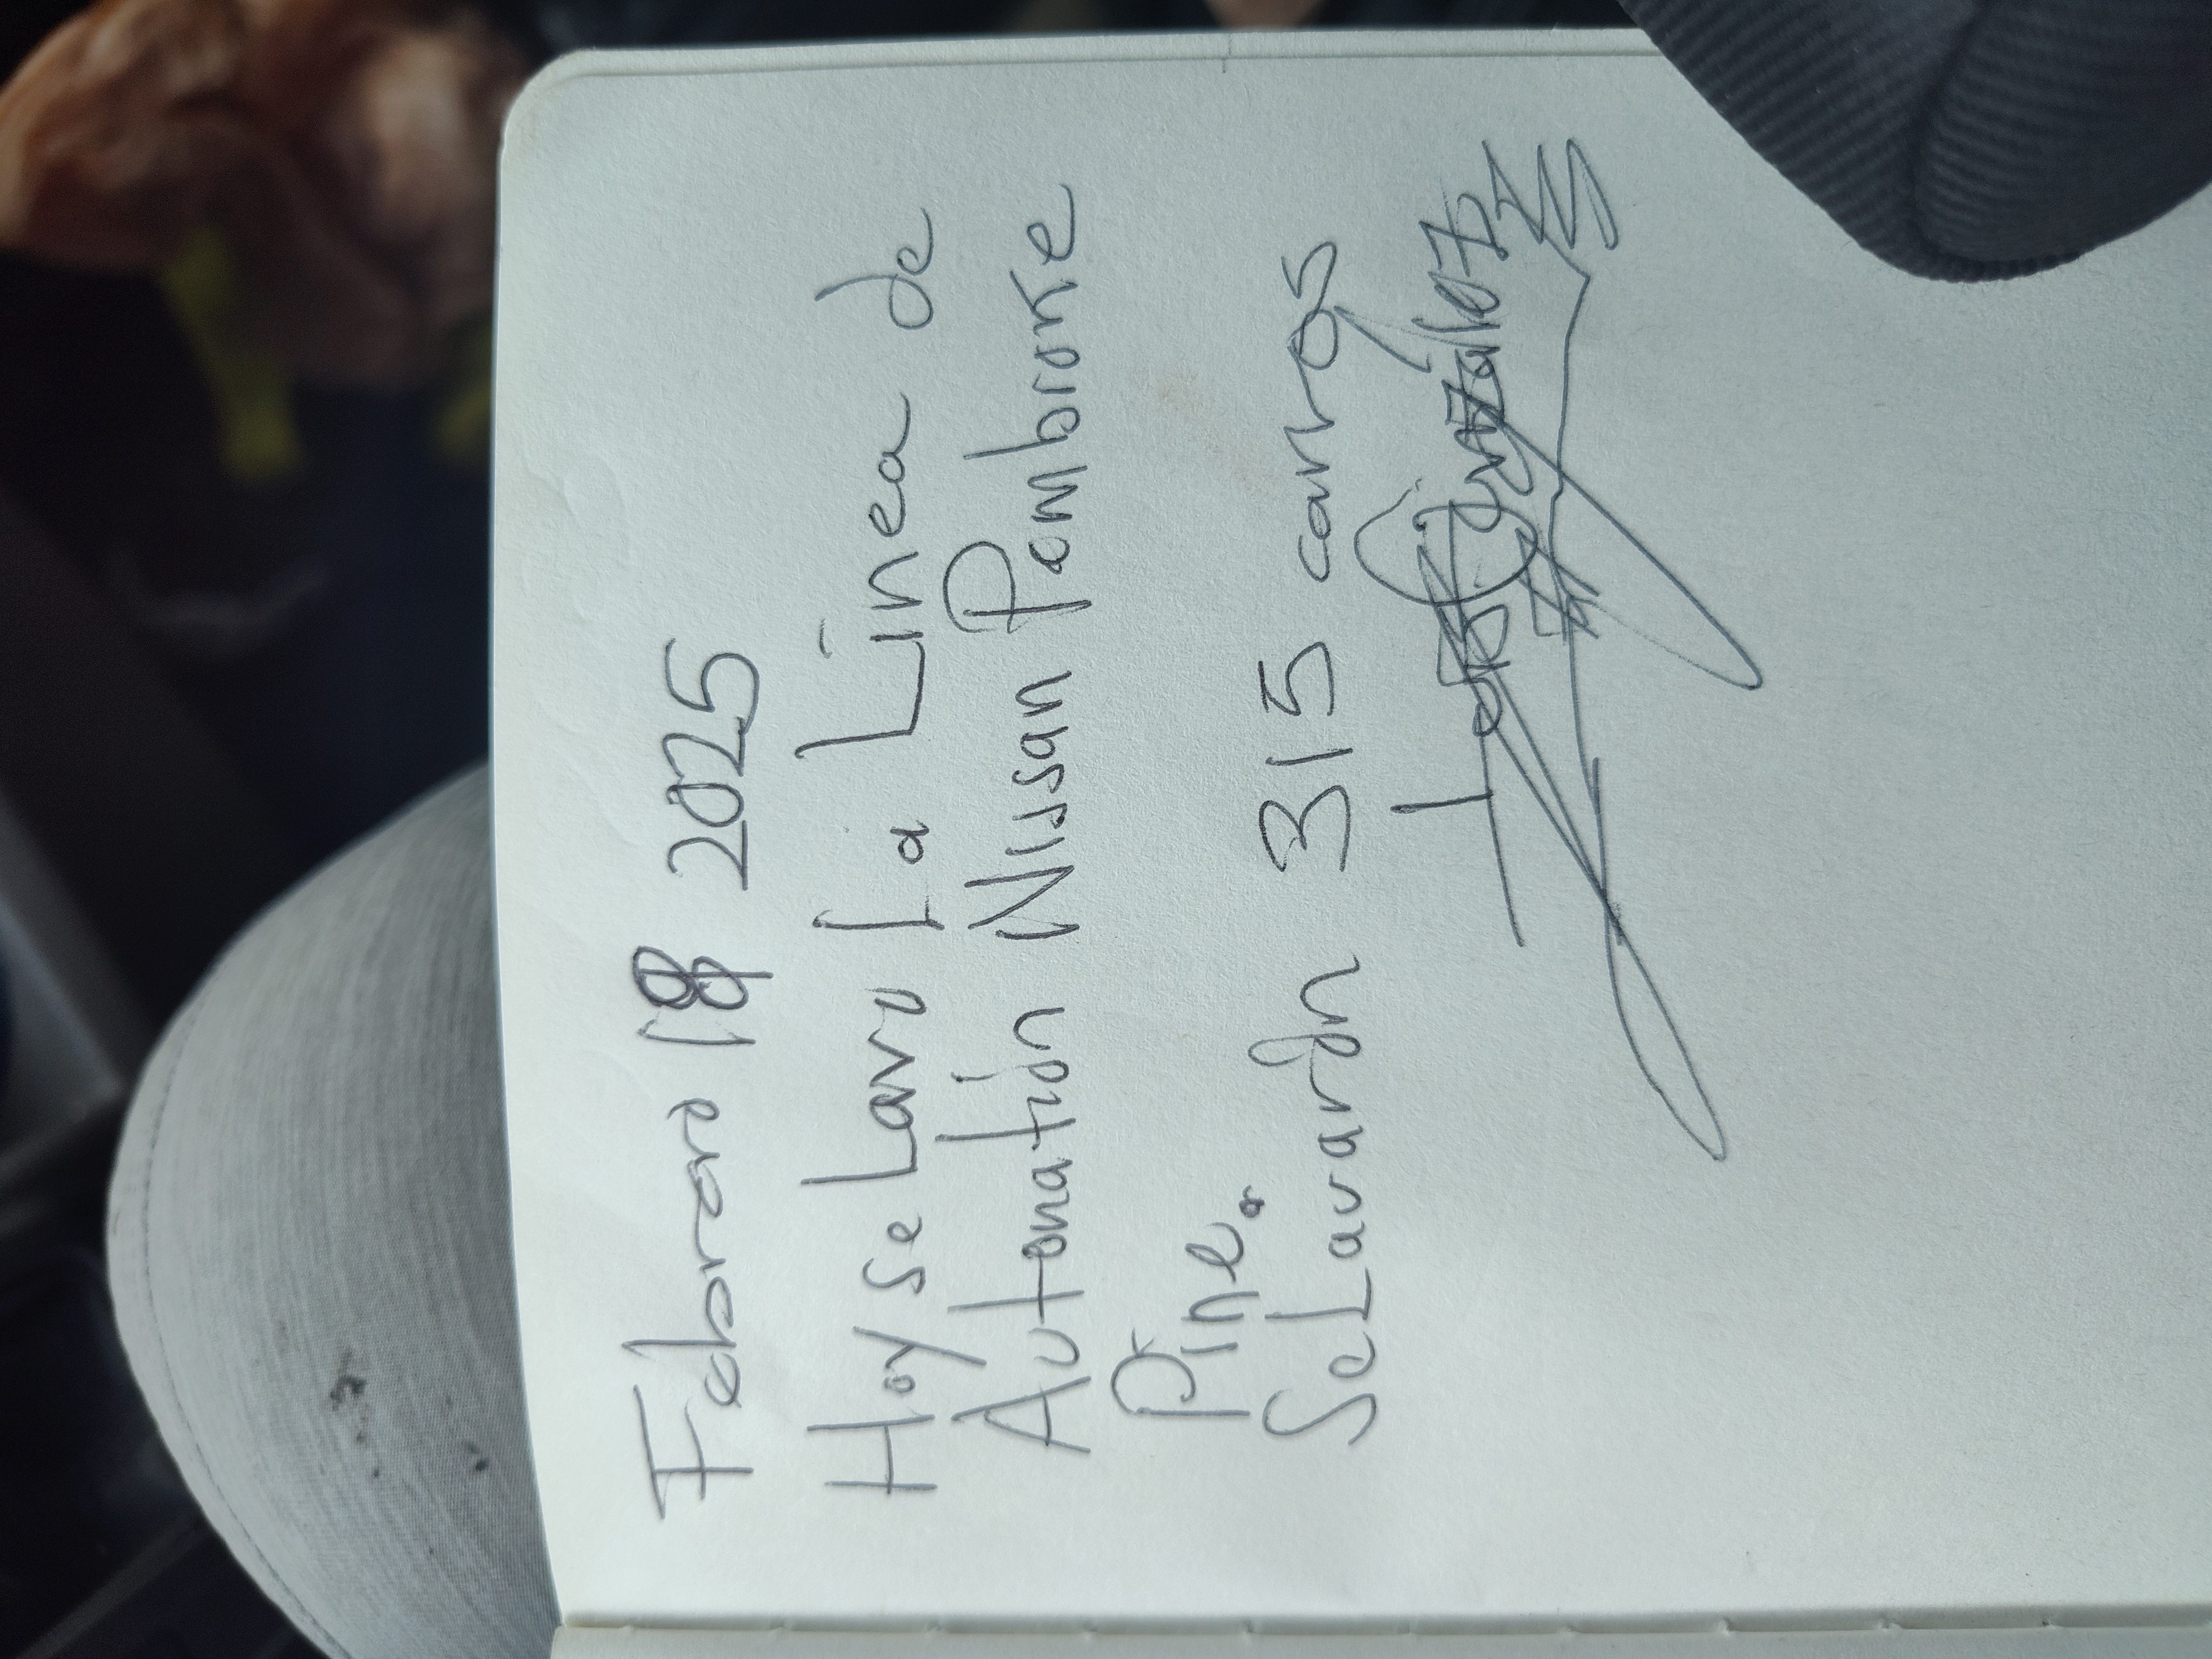 Febrero 18 2025
Hoy se Lavo La Linea de
Automation Nissan Pombroke
Pine.
Se Lavarón 315 carros